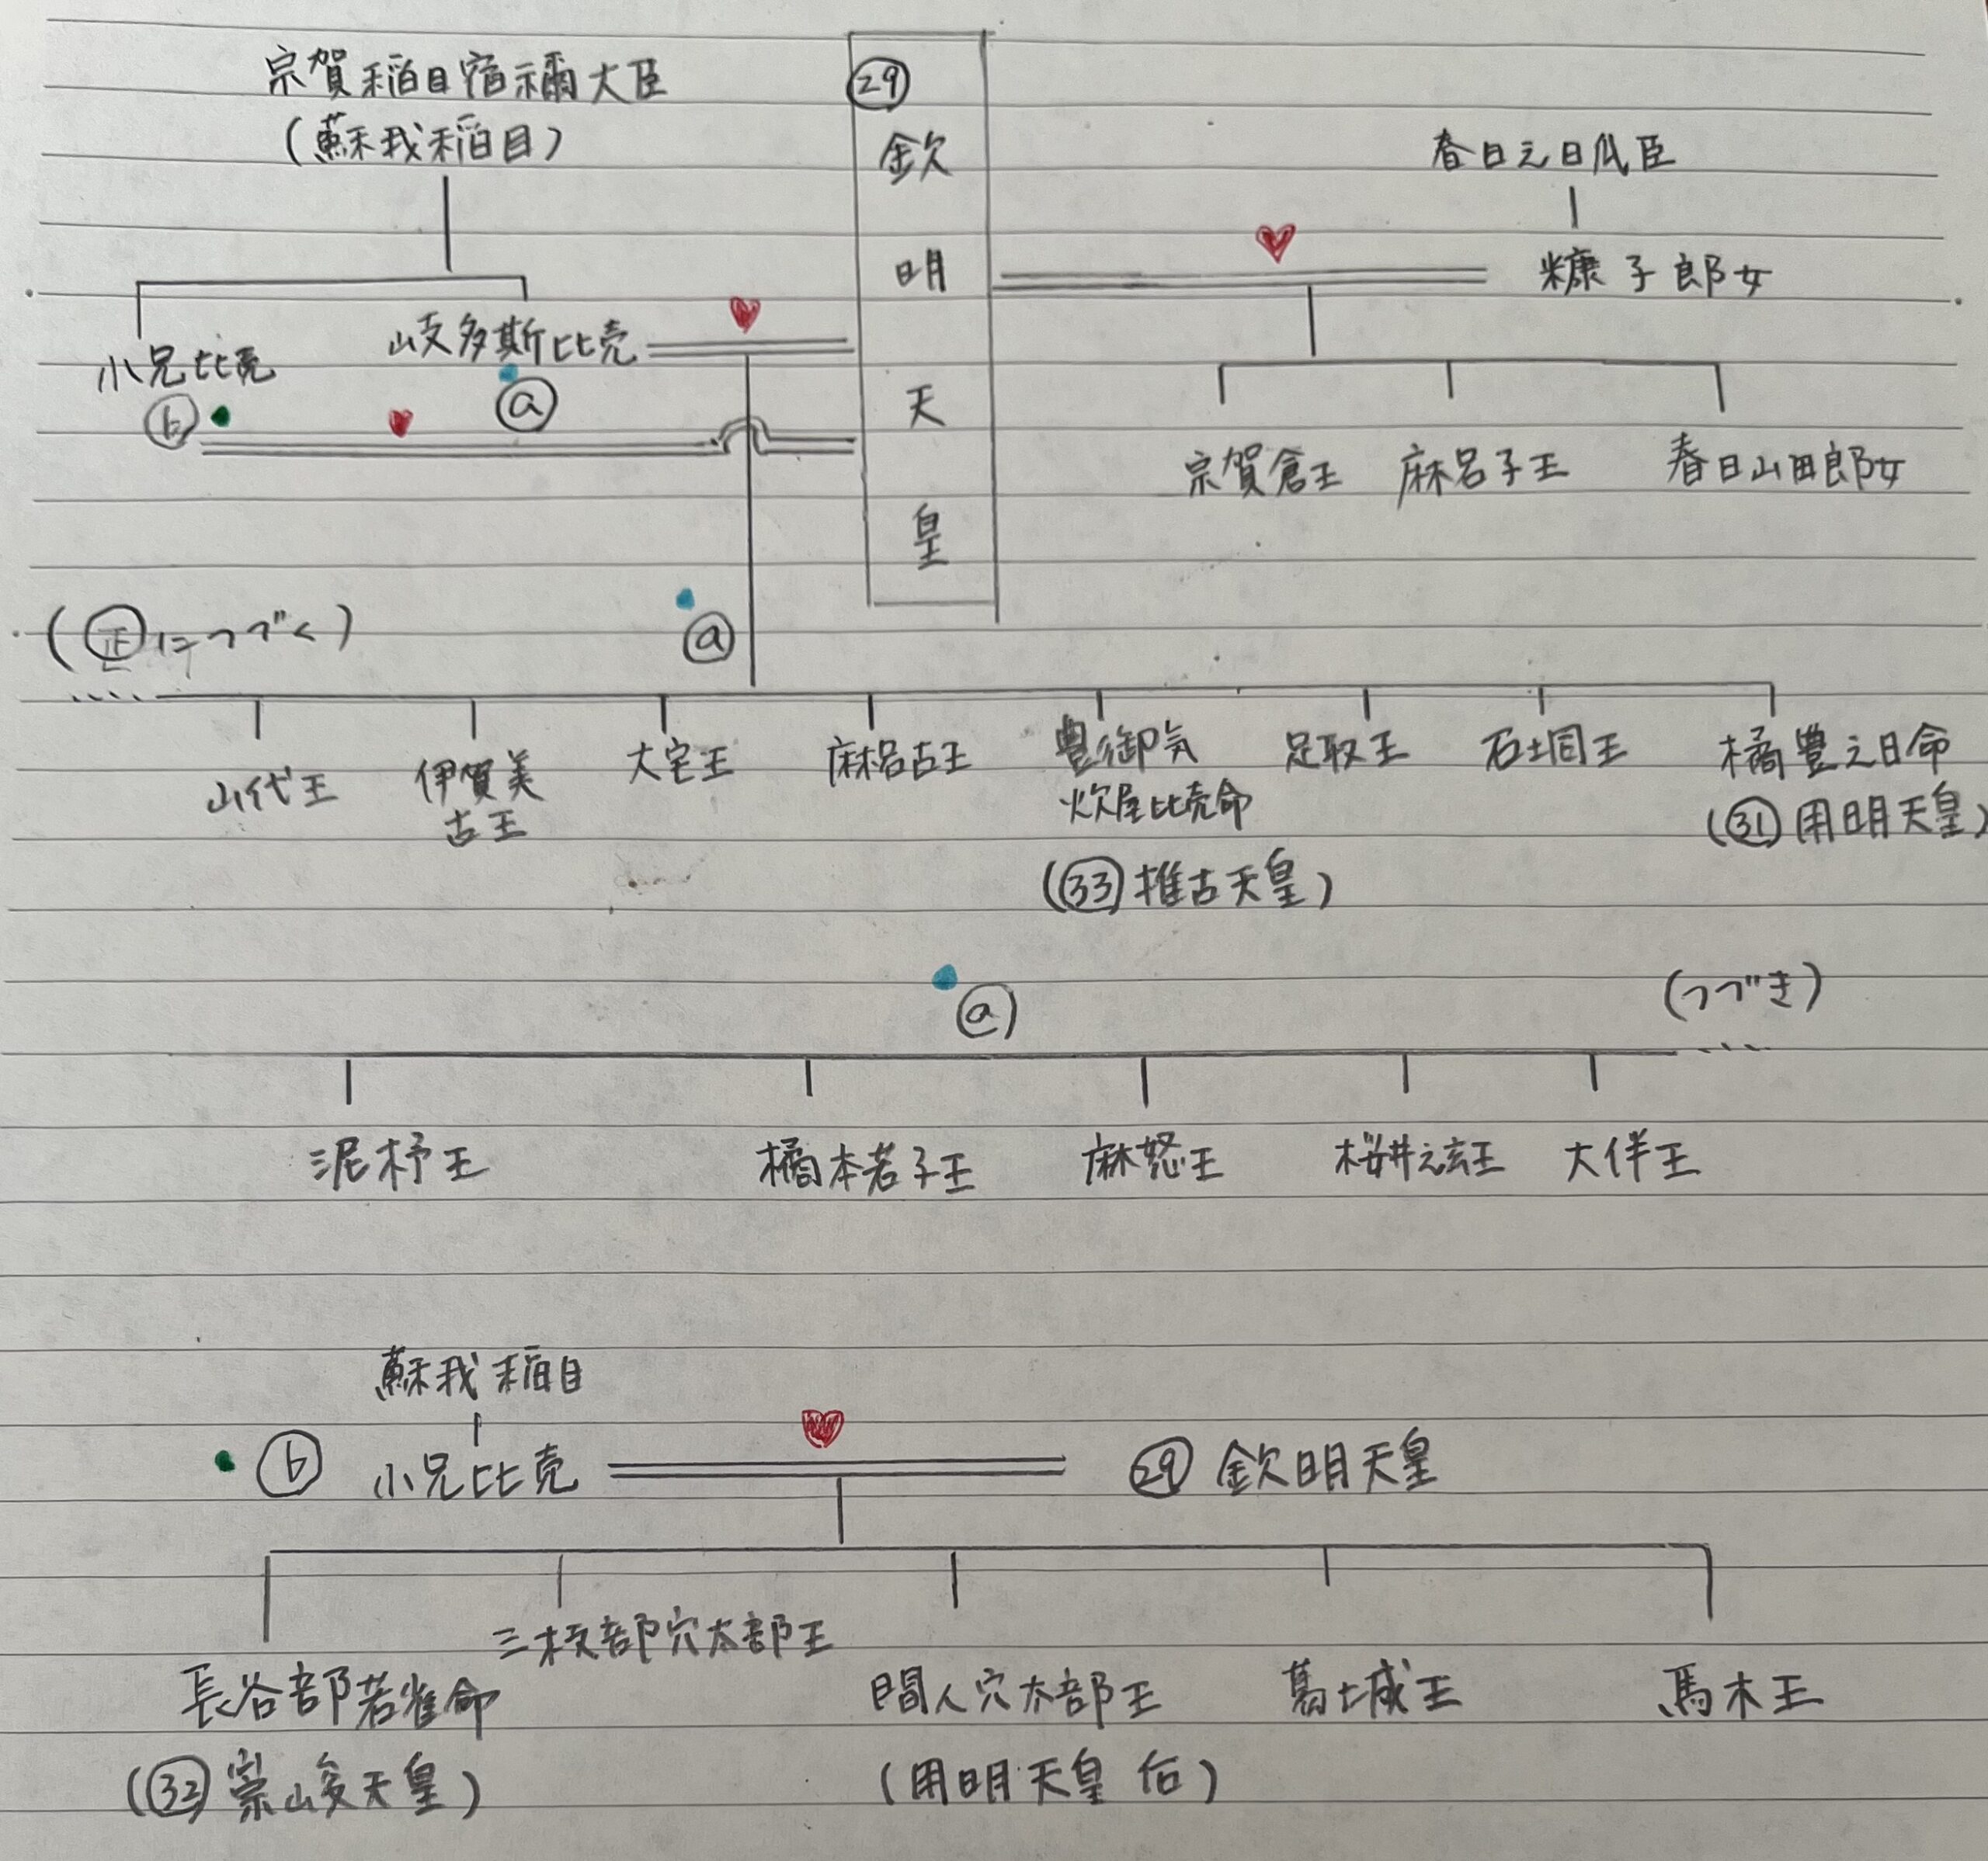 宗賀稲目宿禰大臣
(蘇我稲目)
㉙
欽明天皇
春日之日爪臣
糠子郎女
小兄比売
ⓑ
岐多斯比売
ⓐ
宗賀倉王
麻呂子王
春日山田郎女
(㊣につづく)
ⓐ
山代王
伊賀美
古王
大宅王
麻呂古王
豊御気
炊屋比売命
(㉝推古天皇)
足取王
石土同王
橘豊之日命
(㉛用明天皇)
ⓐ
(つづき)
泥杼王
橘本若子王
麻怒王
桜井之玄王
大伴王
蘇我稲目
ⓑ 小兄比売
㉙ 欽明天皇
長谷部若雀命
(㉜崇峻天皇)
三枝部穴太部王
間人穴太部王
(用明天皇 后)
葛城王
馬木王